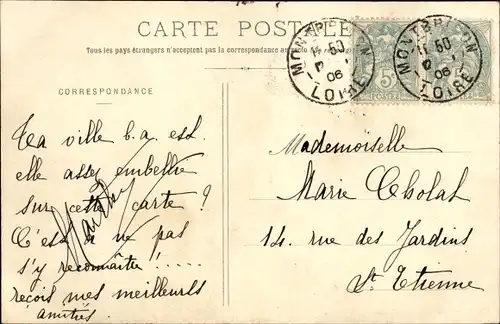 CARTE POSTALE
Tous les pays étrangers n'acceptent pas la correspondance au
CORRESPONDANCE
MONTBRISON
LOIRE
11 50
06
MONTBRISON
LOIRE
50
06
5
POSTES
Ta ville b.a. est
elle assez embellie
sur cette carte ?
C'est à ne pas
s'y reconnaître !.....
reçois mes meilleurs
amitiés.
Mademoiselle
Marie Cholat
14 rue des Jardins
St Etienne